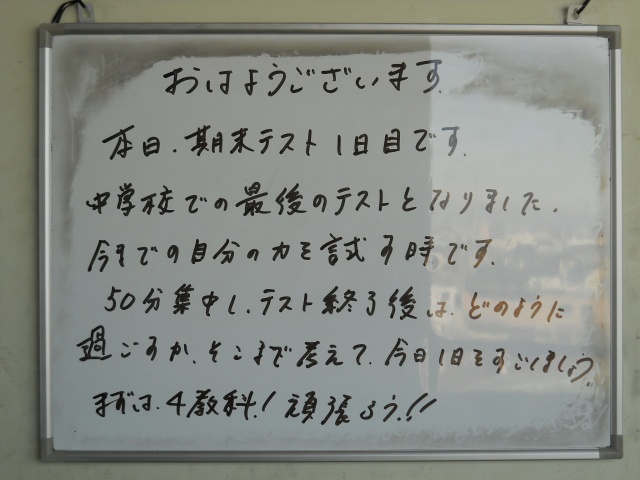 おはようございます.
本日.期末テスト1日目です.
中学校での最後のテストとなりました.
今までの自分の力を試す時です.
50分集中し.テスト終了後は.どのように
過ごすか.そこまで考えて.今日1日をすごしましょう.
まずは.4教科!頑張ろう!!